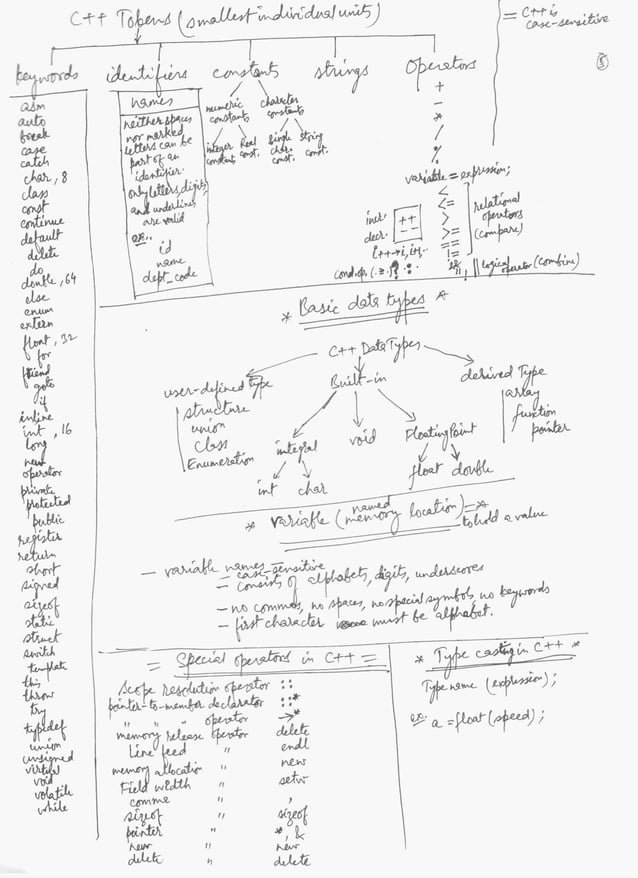 C++ Tokens (smallest individual units)
= C++ is
case-sensitive
5
keywords
asm
auto
break
case
catch
char, 8
class
const
continue
default
delete
do
double, 64
else
enum
extern
float, 32
for
friend
goto
if
inline
int, 16
long
new
operator
private
protected
public
register
return
short
signed
sizeof
static
struct
switch
template
this
throw
try
typedef
union
unsigned
virtual
void
volatile
while
identifiers
names
neither spaces
nor marked
letters can be
part of an
identifier.
only letters, digits,
and underlines
are valid
ex:.
id
name
dept_code
constants
numeric
constants
character
constants
integer
constant
Real
const.
single
char.
const.
string
const.
strings
Operators
+
-
*
/
%
variable = expression;
<
<=
>
>=
==
!=
relational
operators
(compare)
incr.
++
decr.
--
i++→i, i+1.
cond. op. ? :
&&, ! || logical
operator (combine)
* Basic data types *
C++ Data Types
user-defined type
structure
union
Class
Enumeration
Built-in
integral
int
char
void
Floating Point
float
double
derived Type
array
function
pointer
* variable (named memory location) = *
to hold a value
- variable names
= case-sensitive
- consists of alphabets, digits, underscores
- no commas, no spaces, no special symbols, no keywords
- first character must be alphabet.
= Special operators in C++ =
scope resolution operator ::
pointer-to-member declarator ::*
" " " operator →*
memory release operator delete
Line feed " endl
memory allocation " new
Field width " setw
comma " ,
sizeof " sizeof
pointer " *, &
new " new
delete " delete
* Type casting in C++ *
Type name (expression);
ex:. a = float (speed);